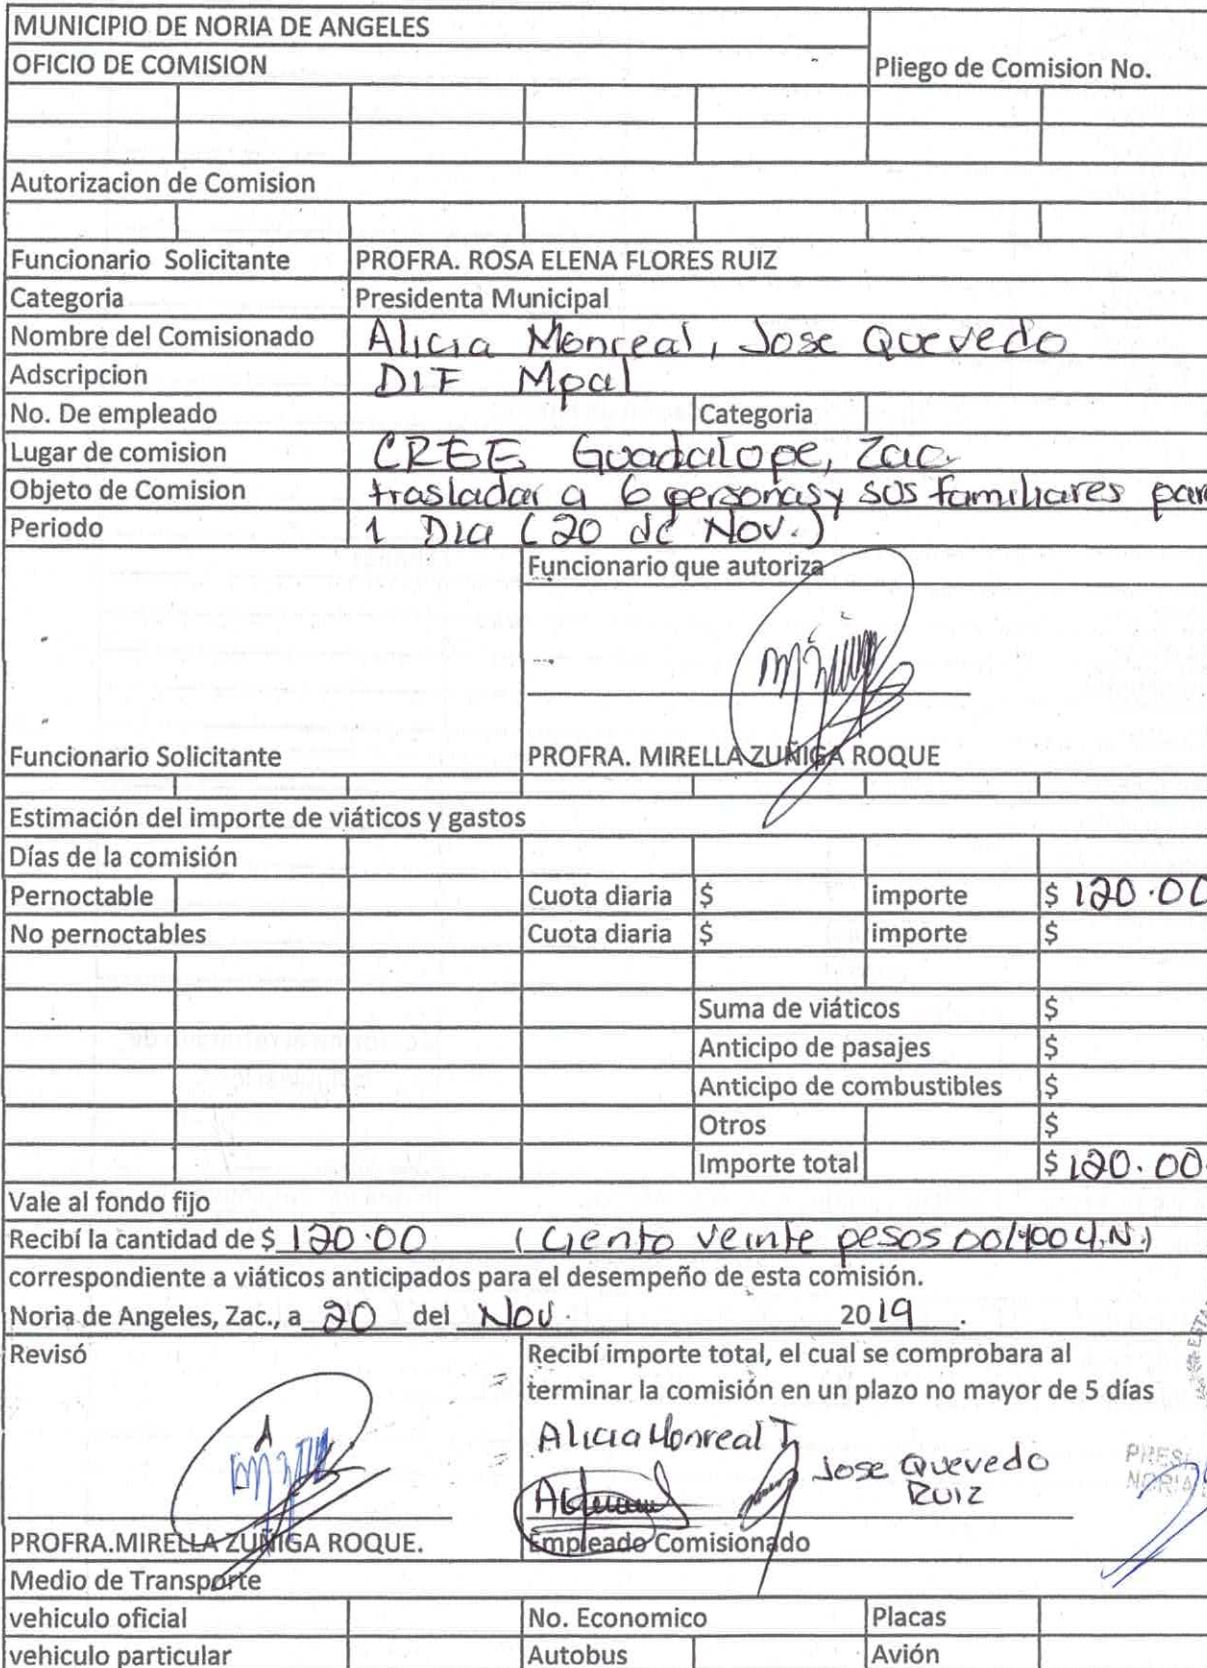 MUNICIPIO DE NORIA DE ANGELES
OFICIO DE COMISION
Pliego de Comision No.
Autorizacion de Comision
Funcionario Solicitante PROFRA. ROSA ELENA FLORES RUIZ
Categoria Presidenta Municipal
Nombre del Comisionado Alicia Monreal, Jose Quevedo
Adscripcion DIF Mpal
No. De empleado Categoria
Lugar de comision CREE Guadalope, Zac.
Objeto de Comision trasladar a 6 personas y sus familiares par
Periodo 1 Dia (20 de Nov.)
Funcionario que autoriza
Funcionario Solicitante PROFRA. MIRELLA ZUÑIGA ROQUE
Estimación del importe de viáticos y gastos
Días de la comisión
Pernoctable Cuota diaria $ importe $ 120.00
No pernoctables Cuota diaria $ importe $
Suma de viáticos $
Anticipo de pasajes $
Anticipo de combustibles $
Otros $
Importe total $ 120.00
Vale al fondo fijo
Recibí la cantidad de $ 120.00 (Ciento veinte pesos 00/100 M.N.)
correspondiente a viáticos anticipados para el desempeño de esta comisión.
Noria de Angeles, Zac., a 20 del Nov. 2019.
Revisó
Recibí importe total, el cual se comprobara al
terminar la comisión en un plazo no mayor de 5 días
Alicia Monreal T
Jose Quevedo
Ruiz
PROFRA.MIRELLA ZUÑIGA ROQUE. Empleado Comisionado
PRESI
NORIA
Medio de Transporte
vehiculo oficial No. Economico Placas
vehiculo particular Autobus Avión